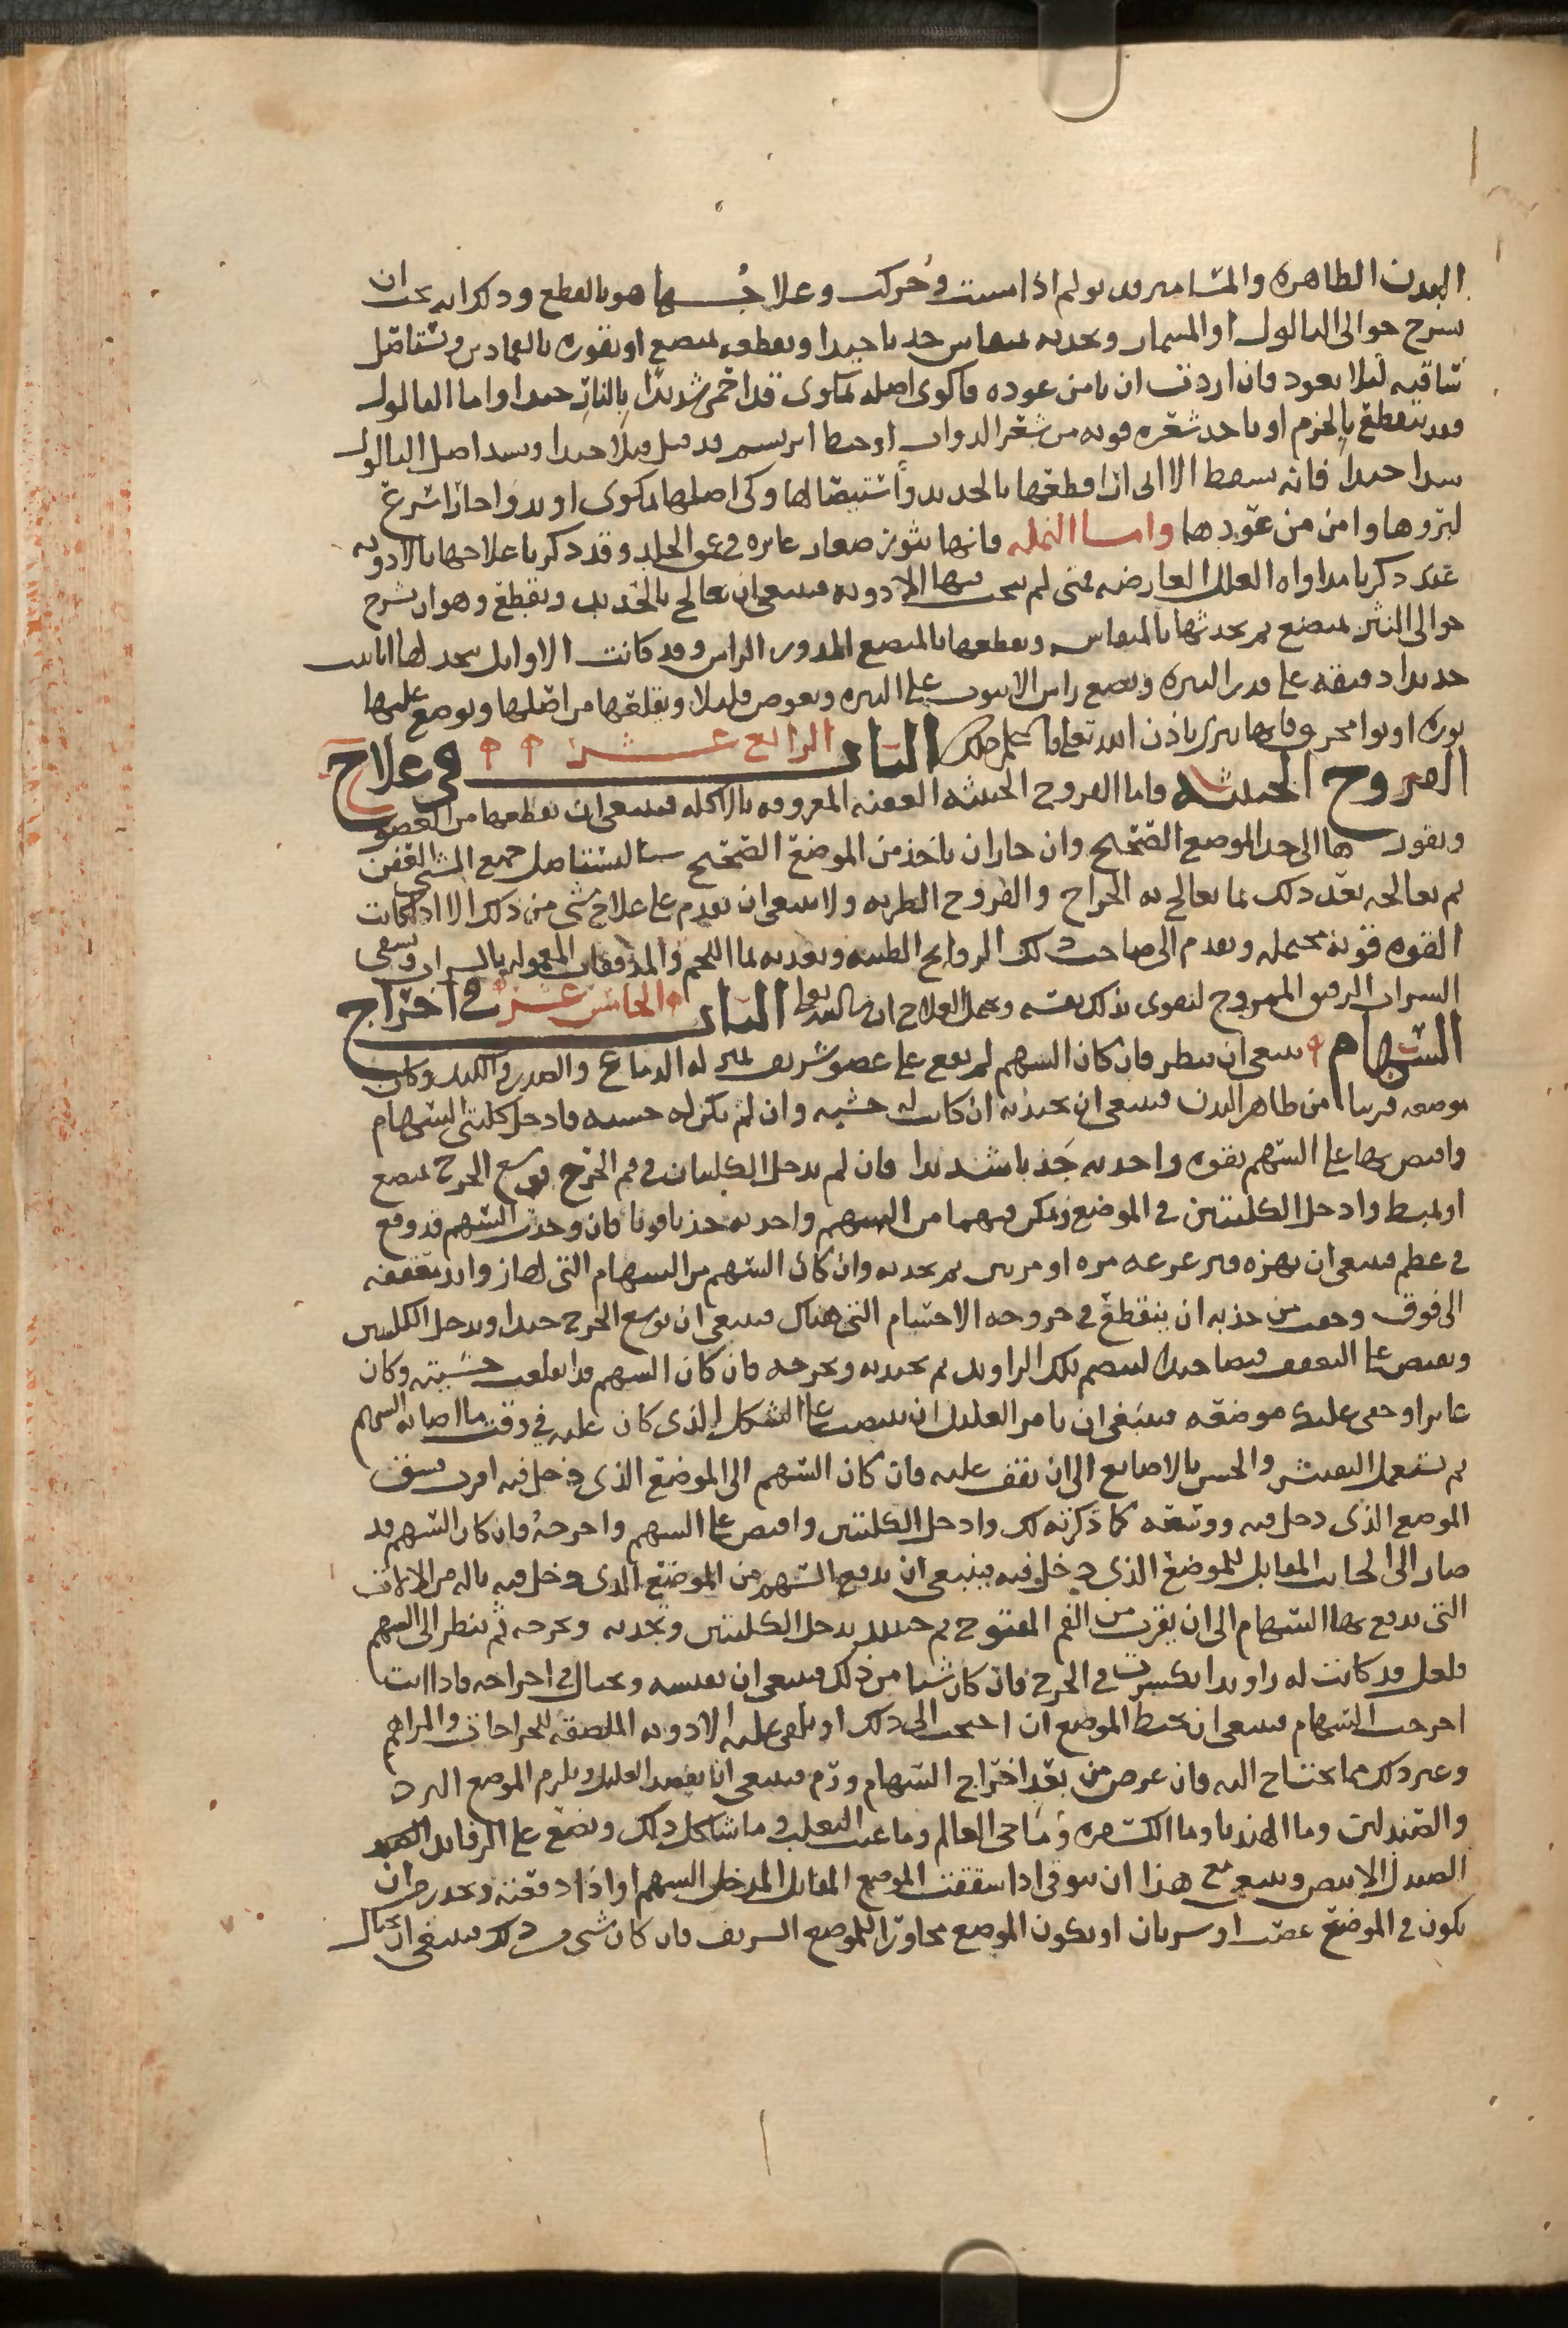 البدن الظاهره والمسامير قد تولم اذا مست وحركت وعلاجها هو بالقطع وذلك انه يجب ان
تشرح حوالى الثالول او المسمار وتجذبه بمنقاش جذبا جيدا وتقطعه بمبضع او تقوره بالقمادين وتستاصل
شاقيه ليلا يعود فان اردت ان تامن عوده فاكوى اصله بمكوى قد احمى شديدا بالنار جيدا واما الثالول
فقد يقطع بالخزم او ياخذ شعره قويه من شعر الدواب او خيط ابريسم قد فتل فتلا جيدا ويشد اصل الثالول
شدا جيدا فانه يسقط الا الى ان اقطعها بالحديد واستيصالها وكى اصلها بمكوى او بدوا حار اسرع
لبروها وامن من عودها واما النمله فانها بثور صغار غايره فى عمق الجلد وقد ذكرنا علاجها بالادويه
عند ذكرنا مداواه العلل العارضه فمتى لم ينجب فيها الادويه فينبغى ان تعالج بالحديد وتقطع وهو ان تشرح
حوالى البثر بمبضع ثم تجذبها بالمنقاش وتقطعها بالمبضع المدور الراس وقد كانت الاوايل تتخذ لها انابيب
حديدا دقيقه على قدر البثره وتضع راس الانبوب على البثره وتغوص قليلا وتقلعها من اصلها ويوضع عليها
نوره او دوا محرق فانها تبرى باذن الله تعالى الباب الرابع عشر فى علاج
القروح الخبيثه فاما القروح الخبيثه العفنه المعروفه بالاكله فينبغى ان تقطعها من العضو
وتقورها الى حد الموضع الصحيح وان جاز ان ياخذ من الموضع الصحيح شيا ليستاصل جميع الشى العفن
ثم تعالجه بعد ذلك بما تعالج به الجراح والقروح الطريه ولا ينبغى ان تقدم على علاج شى من ذلك الا اذا كانت
القوه قويه محتمله وتقدم الى صاحب ذلك الروايح الطيبه وتغذيه بما اللحم والمدققات المعموله بالشراب وتسقى
الشراب الرقيق الممزوج لتقوى بذلك نفسه ويحمل العلاج ان شاالله تعالى الباب الخامس عشر فى اخراج
السهام ينبغى ان تنظر فان كان السهم لم يقع على عضو شريف بمنزله الدماغ والصدر والكبد وكان
موضعه قريبا من ظاهر البدن فينبغى ان تجذبه ان كانت له خشبه وان لم تكن له خشبه فادخل كلبتى السهام
واقبض بها على السهم بقوه واجذبه جذبا شديدا فان لم يدخل الكلبتان فى فم الجرح فوسع الجرح بمبضع
او بمبط وادخل الكلبتين فى الموضع وتمكن فيهما من السهم واجذبه جذبا قويا فان وجدت السهم قد وقع
فى عظم فينبغى ان تهزه وتزعزعه مره او مرتين ثم تجذبه وان كان السهم من السهام التى لها زوايد معقفه
الى فوق وخفت من جذبه ان ينقطع فى خروجه الاجسام التى هناك فينبغى ان توسع الجرح جيدا وتدخل الكلبتين
وتقبض على التعقف قبضا جيدا لينضم تلك الزوايد ثم تجذبه وتخرجه فان كان السهم قد انقلعت خشبته وكان
غايرا وخفى عليك موضعه فينبغى ان تامر العليل ان ينتصب على الشكل الذى كان عليه فى وقت ما اصابه السهم
ثم تستعمل التفتيش والحس بالاصابع الى ان تقف عليه فان كان السهم الى الموضع الذى دخل فيه اقرب فشق
الموضع الذى دخل فيه ووسعه كما ذكرته لك وادخل الكلبتين واقبض على السهم واخرجه وان كان السهم قد
صار الى الجانب المقابل للموضع الذى دخل فيه فينبغى ان تدفع السهم من الموضع الذى دخل فيه باله من الالات
التى تدفع بها السهام الى ان يقرب من الفم المفتوح ثم حينيذ تدخل الكلبتين وتجذبه وتخرجه ثم تنظر الى السهم
فلعل قد كانت له زوايد انكسرت فى الجرح فان كان شيا من ذلك فينبغى ان تفتشه وتحتال فى اخراجه فاذا انت
اخرجت السهام فينبغى ان تخيط الموضع ان احتجت الى ذلك او تلقى عليه الادويه الملصقه للجراحات والمراهم
وغير ذلك مما يحتاج اليه فان عرض من بعد اخراج السهام ورم فينبغى ان تفصد العليل ويلزم الموضع البرد
والصندلين وما الهندبا وما الكسفره وما حى العالم وما عنب الثعلب وما شاكل ذلك وتضع على الرفايد
الصندل الابيض وينبغى مع هذا ان تتوقى اذا شققت الموضع المقابل لمدخل السهم او اذا دفعته وتحذر من ان
يكون فى الموضع عصب او شريان او يكون الموضع مجاورا للموضع الشريف فان كان شى من ذلك فينبغى ان تحتال